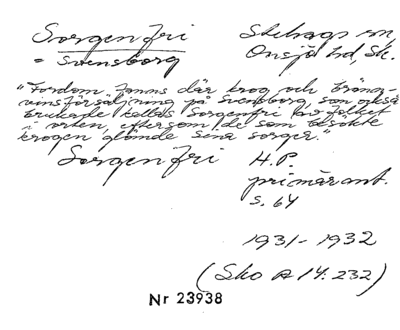 Sorgenfri
= Svensborg
Stehags sn,
Onsjö hd, Sk.
"Fordom fanns där krog och bränn-
vinsförsäljning på Svensborg, som också
brukade kallas Sorgenfri av folket
i orten, eftersom de som besökte
krogen glömde sina sorger."
Sorgenfri
H.P.
primärant.
s. 64
1931-1932
(Sko A 14:232)
Nr 23938